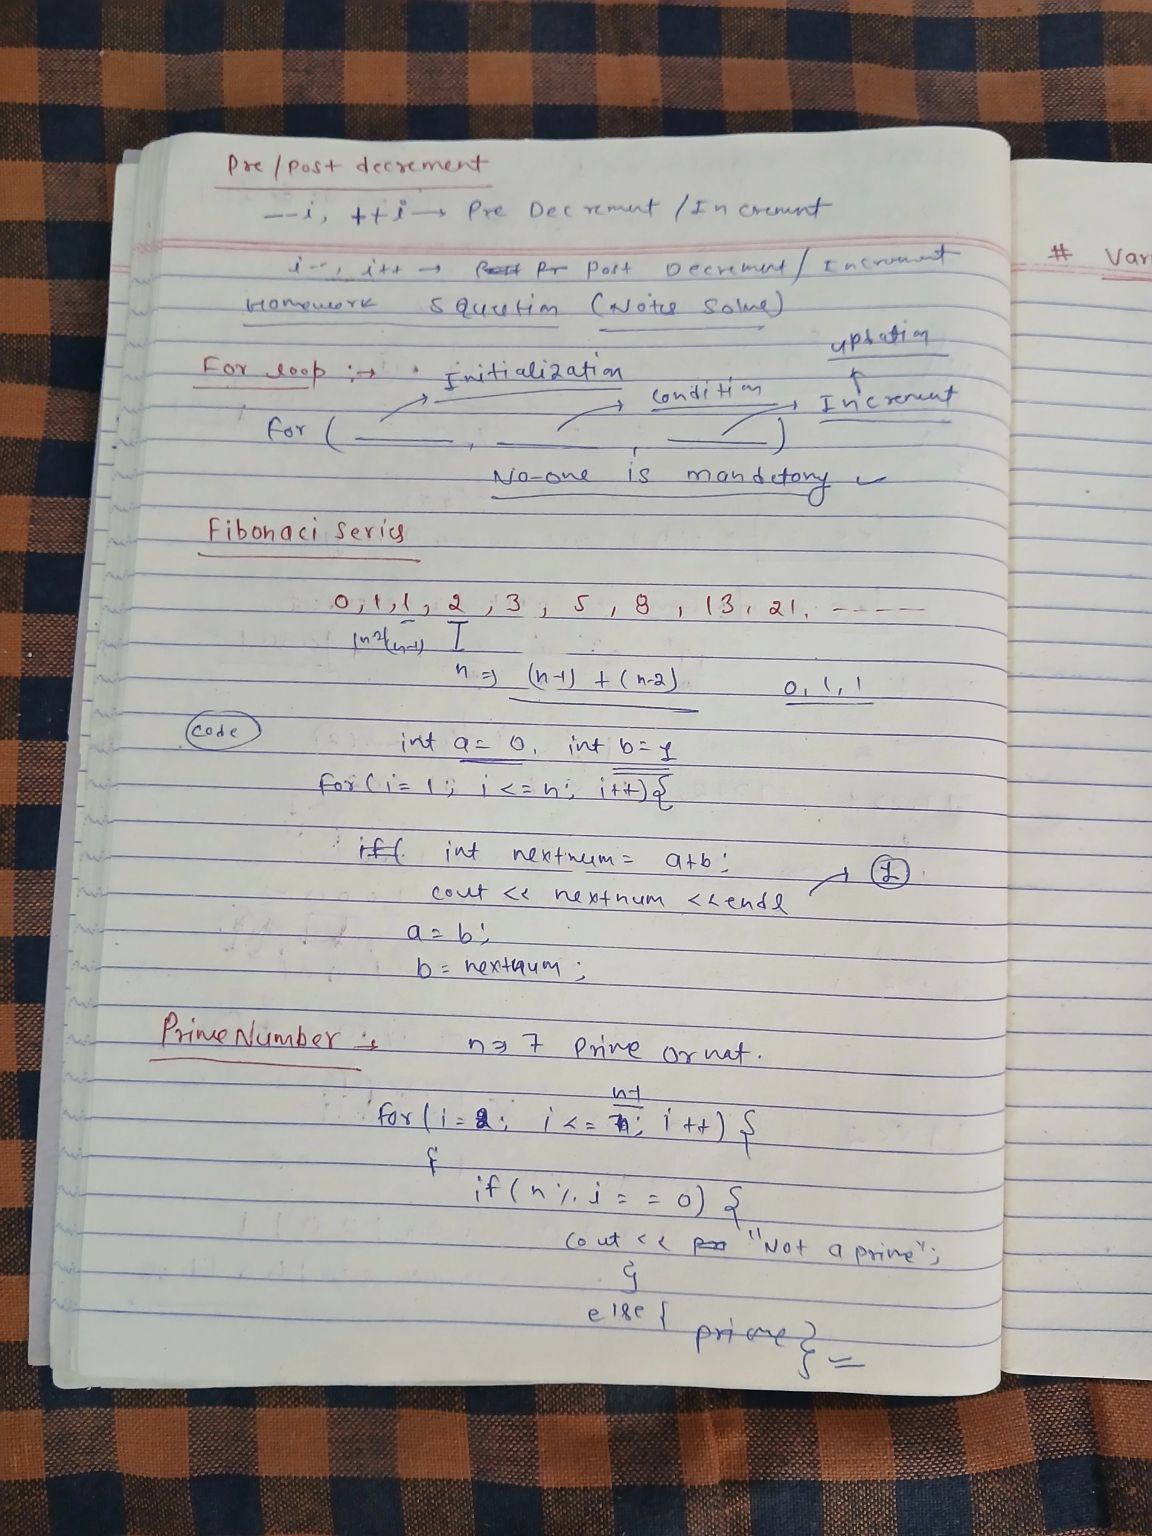 Pre/post decrement
--i, ++i → Pre Decrement / Increment
i--, i++ → Post Decrement / Increment
Homework 5 question (Notes Solve)
updation
For loop :→ Initialization
condition
Increment
for ( ____ , ____ , ____ )
No-one is mandetory ✓
Fibonaci Series
0, 1, 1, 2, 3, 5, 8, 13, 21, -----
n => (n-1) + (n-2) 0, 1, 1
code
int a = 0, int b = 1
for (i = 1; i <= n; i++) {
if( int nextnum = a+b;
cout << nextnum << endl → 1
a = b;
b = nextnum;
Prime Number :→ n → 7 Prime or nat.
n-1
for (i = 2; i <= n; i++) {
{
if (n % i == 0) {
cout << "Not a prime";
}
else {
prime } =
# Var